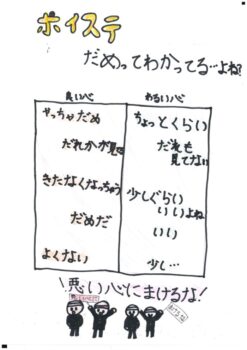 ポイステ
だめってわかってる…よね?
良い心
わるい心
やっちゃだめ
だれかが見てる
きたなくなっちゃう
だめだ
よくない
ちょっとくらい
だれも
見てない
少しぐらい
いいよね
いい
少し…
悪い心にまけるな!